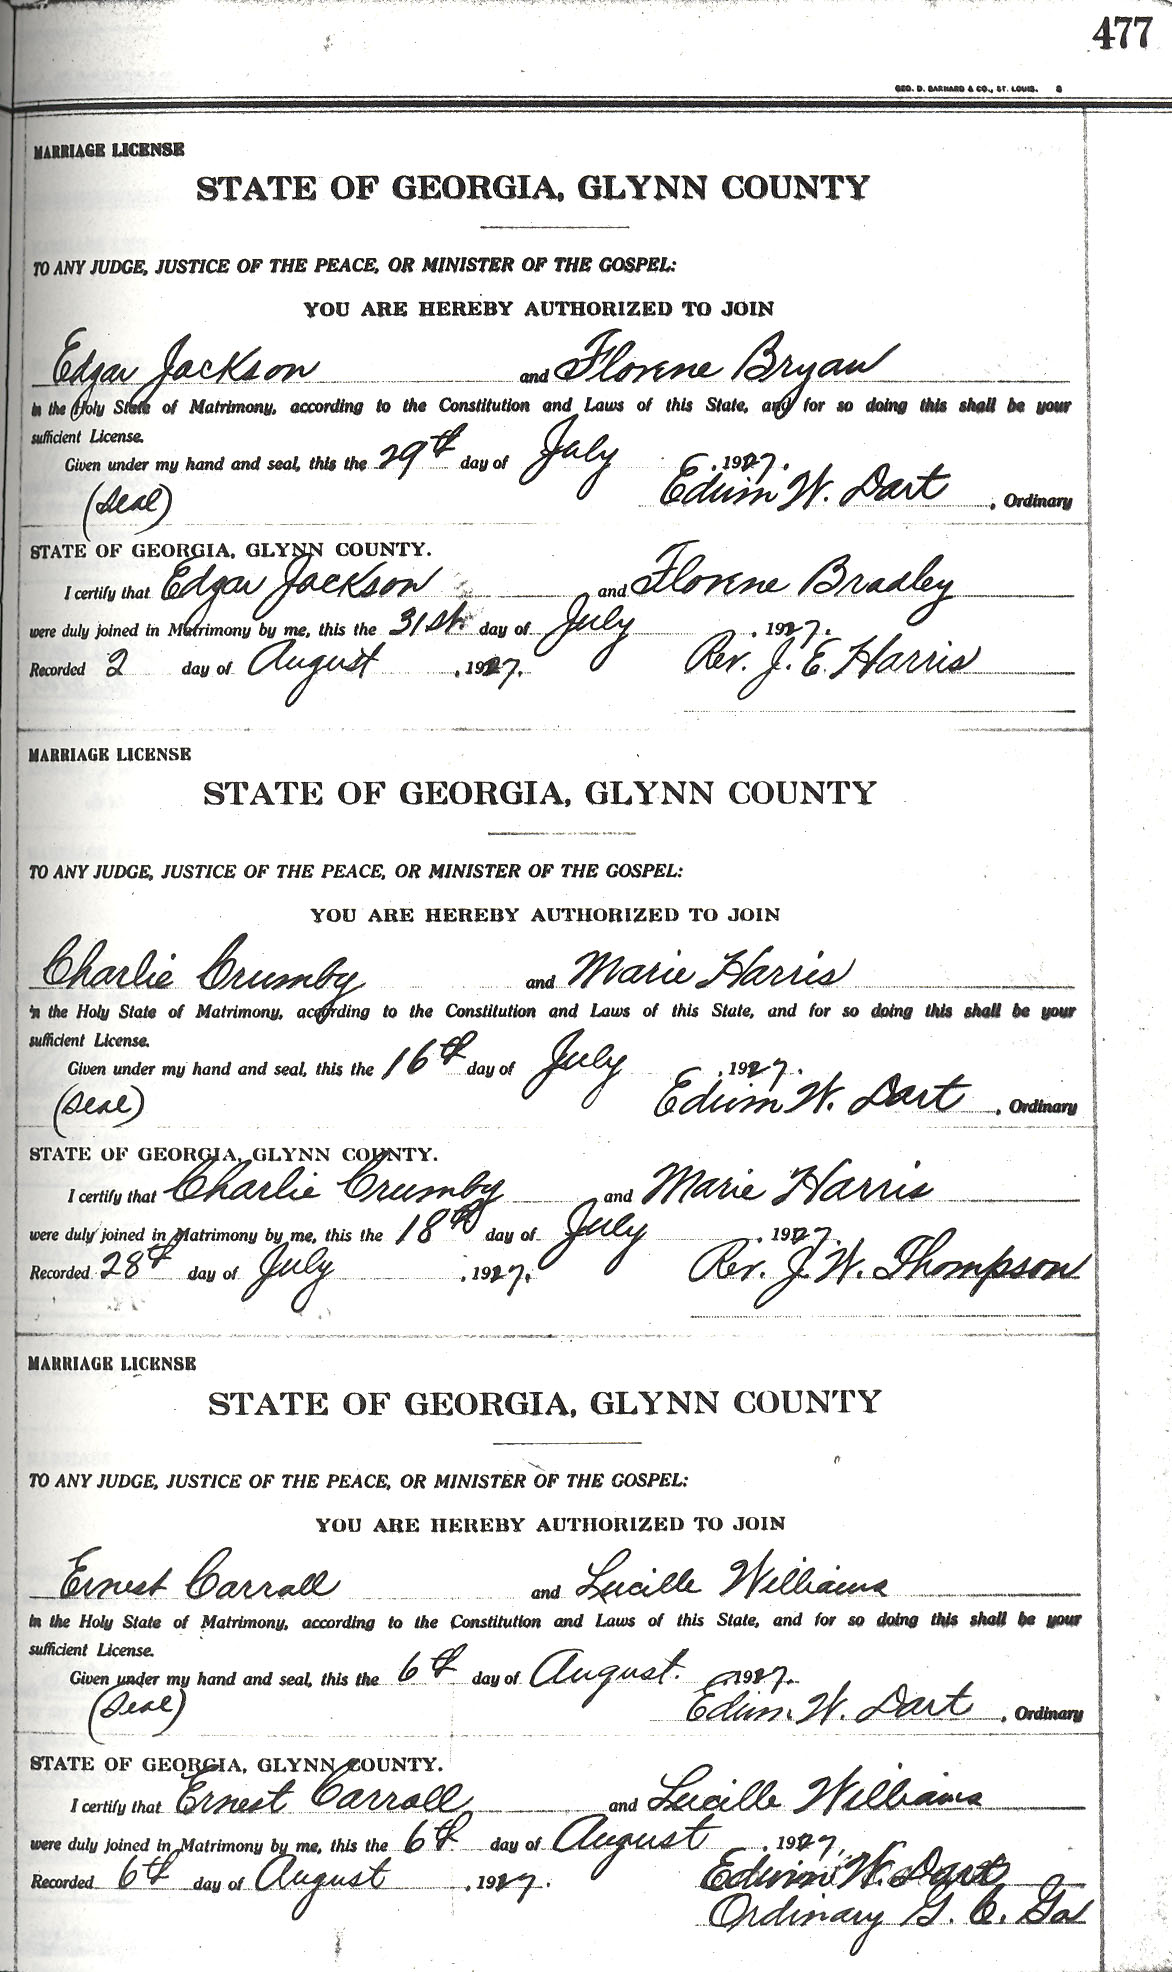 477
GEO. D. BARNARD & CO., ST. LOUIS.
MARRIAGE LICENSE
STATE OF GEORGIA, GLYNN COUNTY
TO ANY JUDGE, JUSTICE OF THE PEACE, OR MINISTER OF THE GOSPEL:
YOU ARE HEREBY AUTHORIZED TO JOIN
Edgar Jackson and Florene Bryan
in the Holy State of Matrimony, according to the Constitution and Laws of this State, and for so doing this shall be your
sufficient License.
Given under my hand and seal, this the 29th day of July , 1927.
(Seal) Edwin W. Dart , Ordinary
STATE OF GEORGIA, GLYNN COUNTY.
I certify that Edgar Jackson and Florene Bradley
were duly joined in Matrimony by me, this the 31st. day of July , 1927.
Recorded 2 day of August , 1927. Rev. J. E. Harris
MARRIAGE LICENSE
STATE OF GEORGIA, GLYNN COUNTY
TO ANY JUDGE, JUSTICE OF THE PEACE, OR MINISTER OF THE GOSPEL:
YOU ARE HEREBY AUTHORIZED TO JOIN
Charlie Crumby and Marie Harris
in the Holy State of Matrimony, according to the Constitution and Laws of this State, and for so doing this shall be your
sufficient License.
Given under my hand and seal, this the 16th day of July , 1927.
(Seal) Edwin W. Dart , Ordinary
STATE OF GEORGIA, GLYNN COUNTY.
I certify that Charlie Crumby and Marie Harris
were duly joined in Matrimony by me, this the 18th day of July , 1927.
Recorded 28th day of July , 1927. Rev. J. W. Thompson
MARRIAGE LICENSE
STATE OF GEORGIA, GLYNN COUNTY
TO ANY JUDGE, JUSTICE OF THE PEACE, OR MINISTER OF THE GOSPEL:
YOU ARE HEREBY AUTHORIZED TO JOIN
Ernest Carroll and Lucille Williams
in the Holy State of Matrimony, according to the Constitution and Laws of this State, and for so doing this shall be your
sufficient License.
Given under my hand and seal, this the 6th day of August. , 1927.
(Seal) Edwin W. Dart , Ordinary
STATE OF GEORGIA, GLYNN COUNTY.
I certify that Ernest Carroll and Lucille Williams
were duly joined in Matrimony by me, this the 6th day of August , 1927.
Recorded 6th day of August , 1927. Edwin W. Dart
Ordinary G. C. Ga